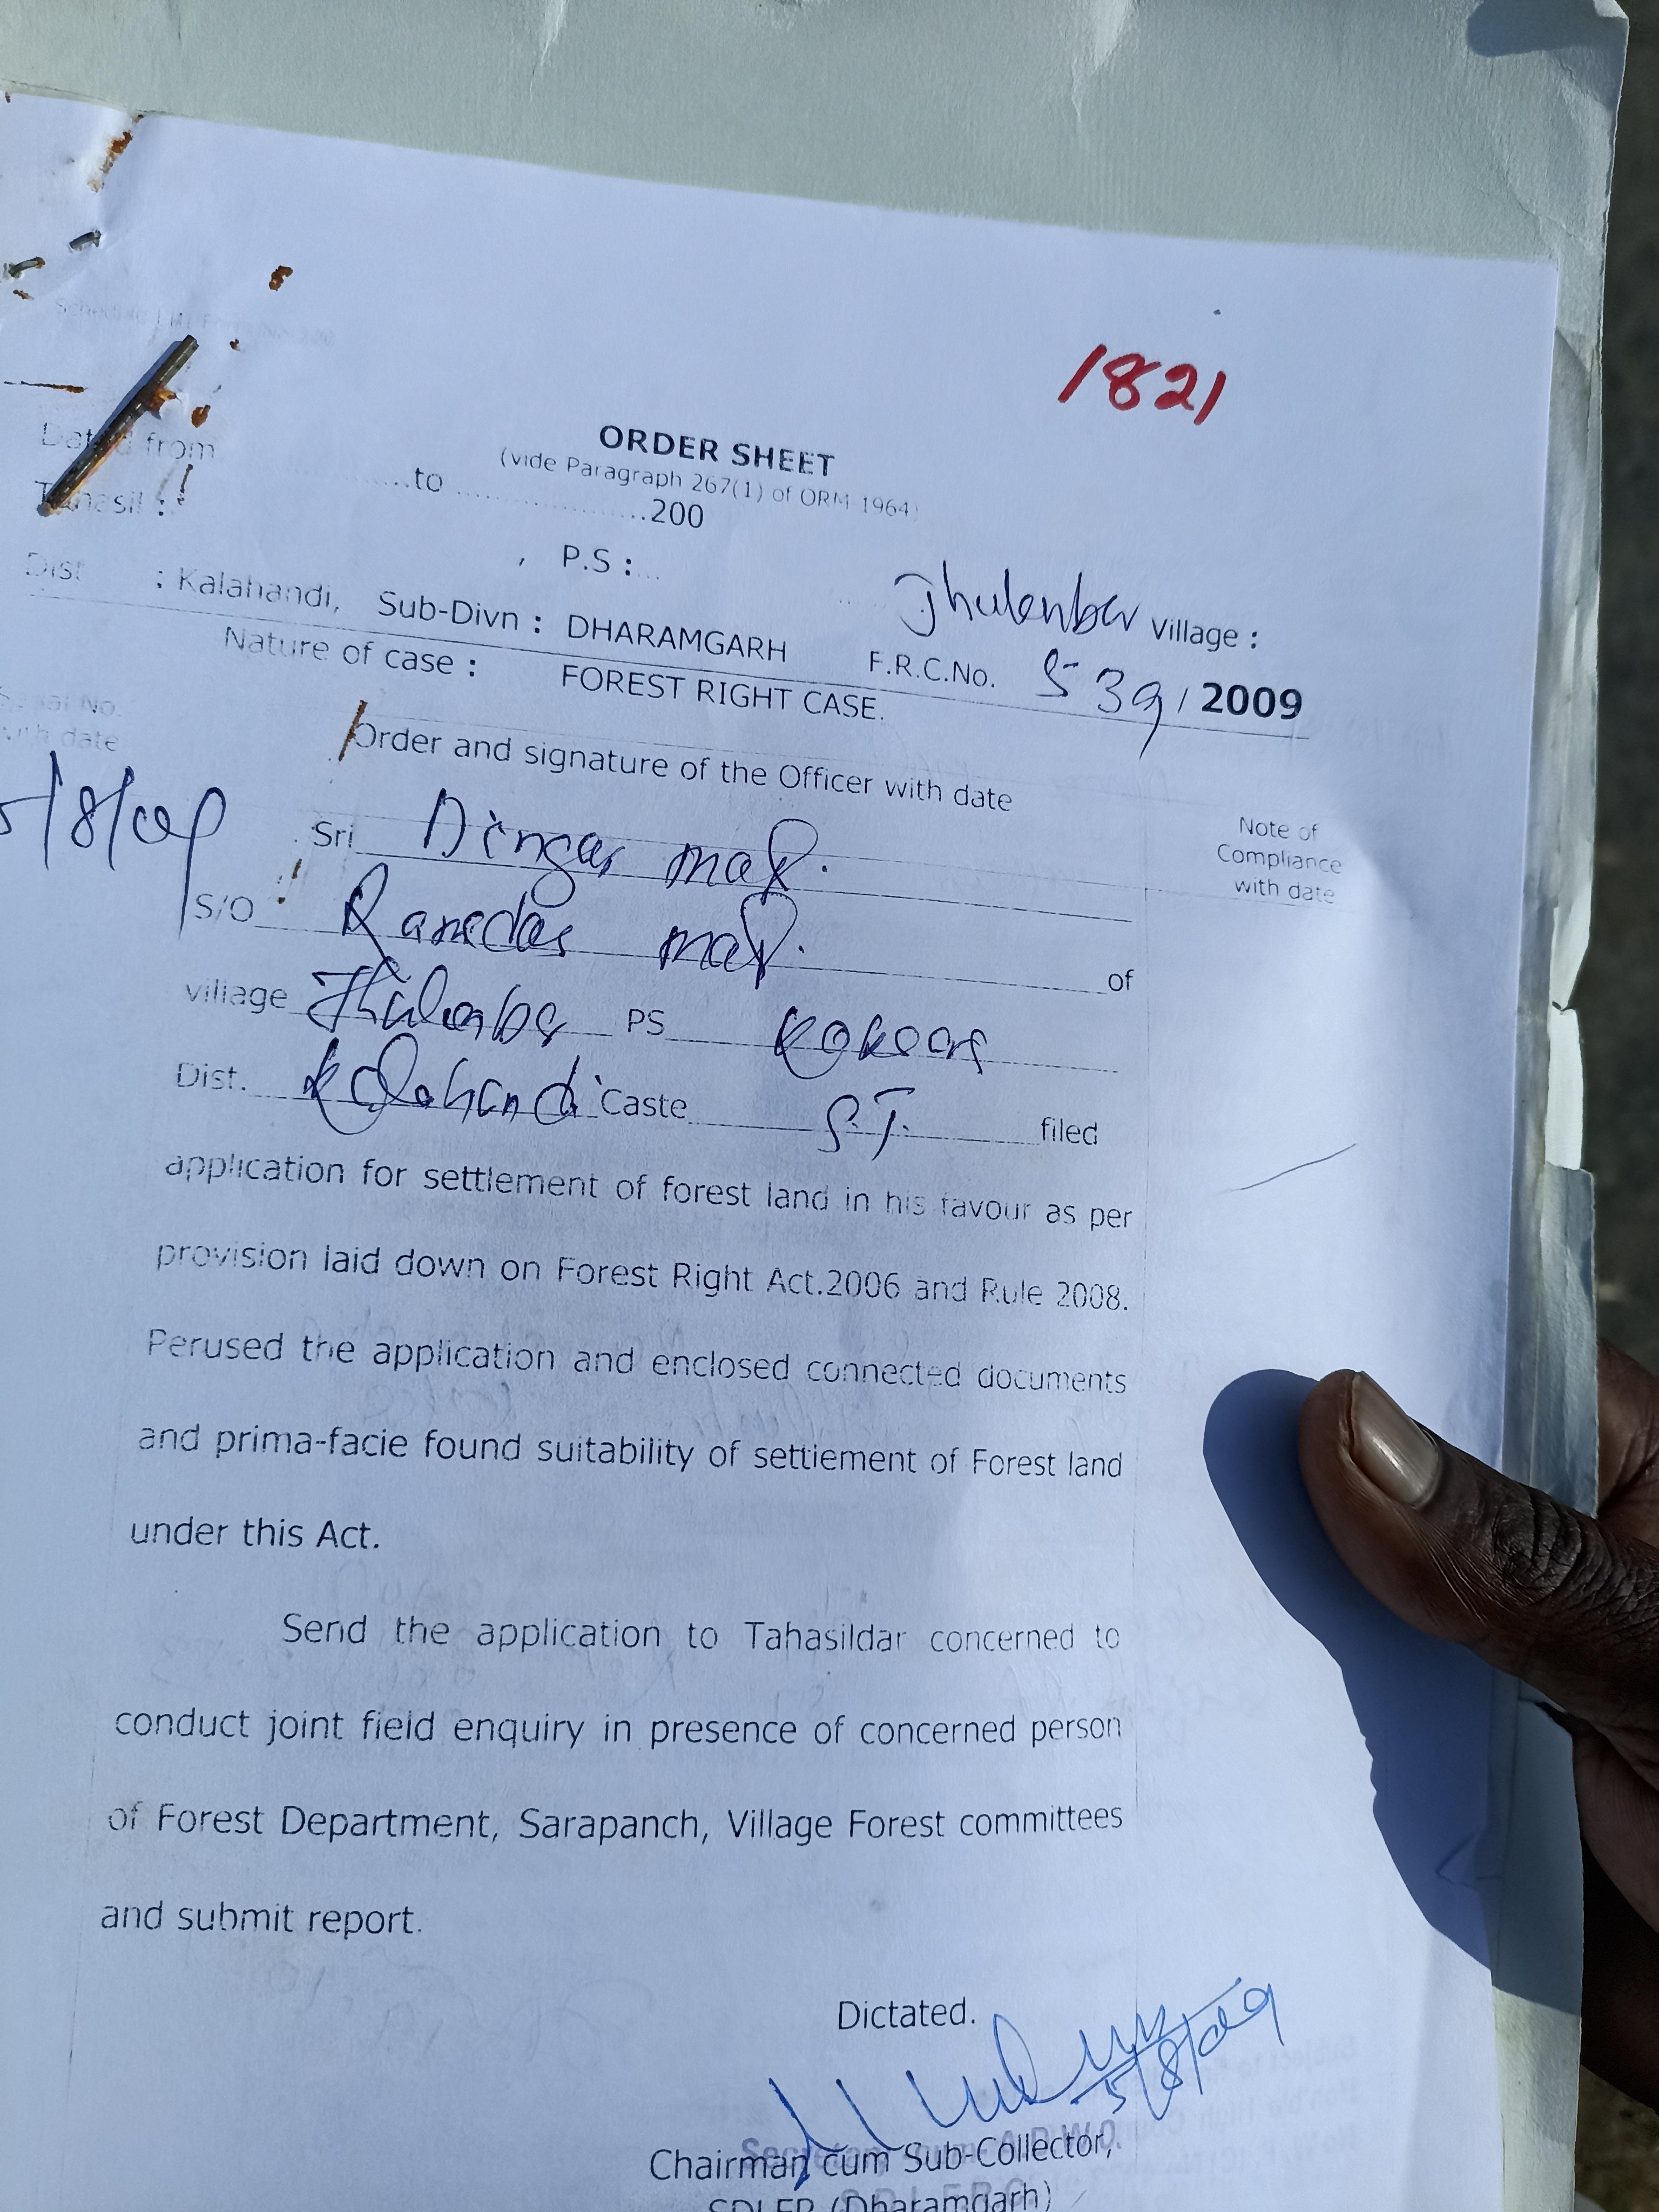 1821
ORDER SHEET
(vide Paragraph 267(1) of ORM 1964)
Dated from ..... to ..... 200
Tahasil : , P.S :... Village :
Dist : Kalahandi, Sub-Divn : DHARAMGARH F.R.C.No. 539 / 2009
Nature of case : FOREST RIGHT CASE.
Serial No.
with date
Order and signature of the Officer with date
Note of
Compliance
with date
5/8/09
Sri Dingar
S/O of
village PS
Dist. Kalahandi Caste S.T. filed
application for settlement of forest land in his favour as per
provision laid down on Forest Right Act.2006 and Rule 2008.
Perused the application and enclosed connected documents
and prima-facie found suitability of settlement of Forest land
under this Act.
Send the application to Tahasildar concerned to
conduct joint field enquiry in presence of concerned person
of Forest Department, Sarapanch, Village Forest committees
and submit report.
Dictated.
5/8/09
Chairman cum Sub-Collector,